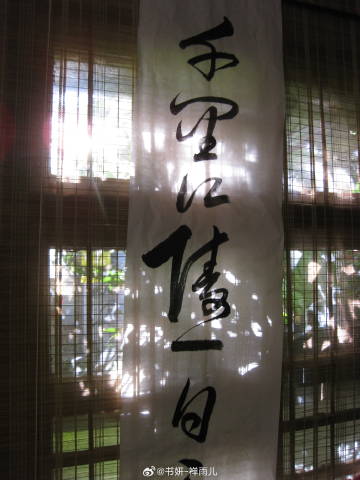 千里江陵一日
@书妍-禅雨儿